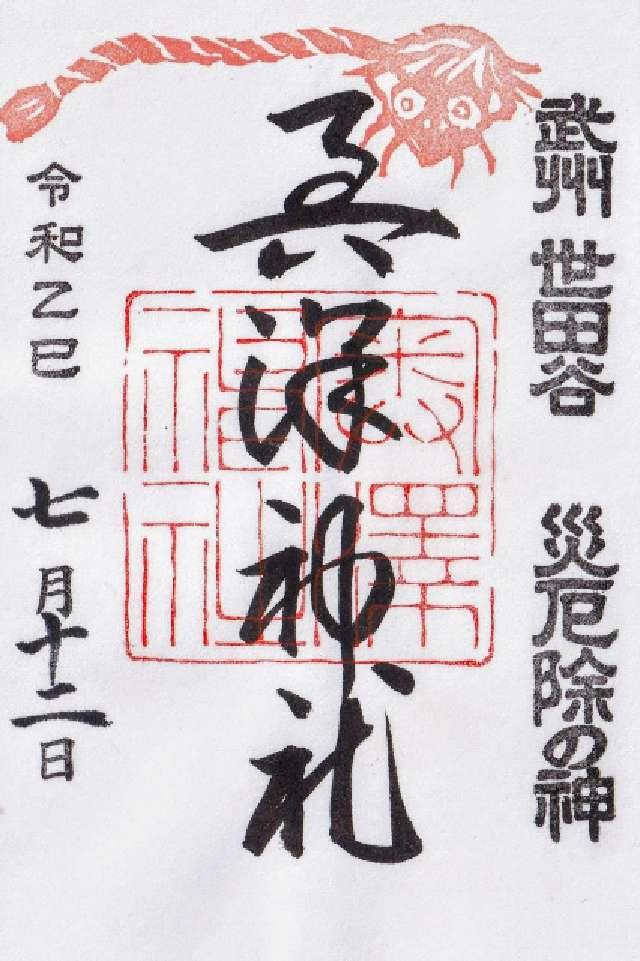 武州 世田谷 災厄除の神
奥澤神社
奥澤神社
令和乙巳
七月十二日